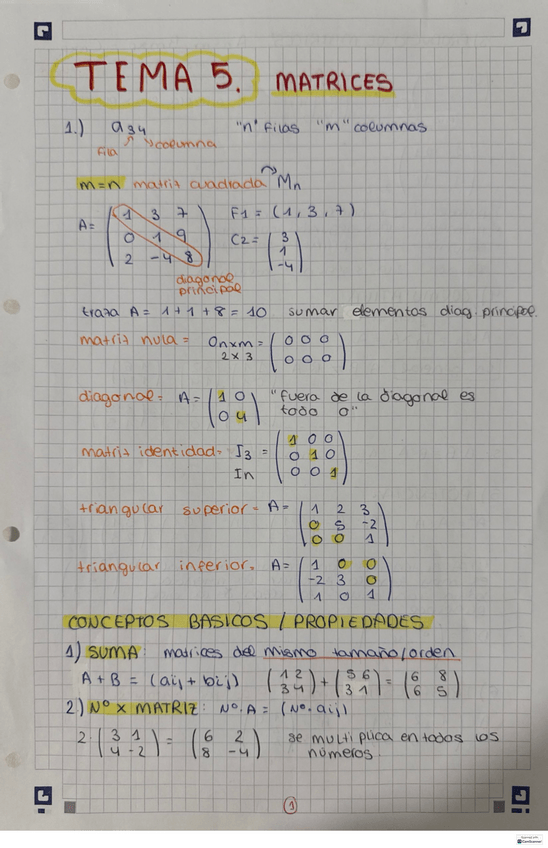 TEMA 5. MATRICES
1.) a34 "n" Filas "m" columnas
Fila columna
m=n matriz cuadrada Mn
A= ( 1 3 7 F1 = (1, 3, 7)
0 1 9 C2 = ( 3
2 -4 8 ) 1
-4 )
diagonal
principal
traza A = 1+1+8 = 10 sumar elementos diag. principal.
matriz nula = 0nxm = ( 0 0 0
2x3 0 0 0 )
diagonal = A = ( 1 0 "fuera de la diagonal es
0 4 ) todo 0"
matriz identidad = I3 = ( 1 0 0
0 1 0
In 0 0 1 )
triangular superior = A = ( 1 2 3
0 5 -2
0 0 1 )
triangular inferior = A = ( 1 0 0
-2 3 0
1 0 1 )
CONCEPTOS BASICOS / PROPIEDADES
1) SUMA: matrices del mismo tamaño/orden
A + B = (aij + bij) ( 1 2 + ( 5 6 = ( 6 8
3 4 ) 3 1 ) 6 5 )
2) Nº x MATRIZ: Nº. A = (Nº. aij)
2. ( 3 1 = ( 6 2 se multiplica en todos los
4 -2 ) 8 -4 ) números.
1
CamScanner